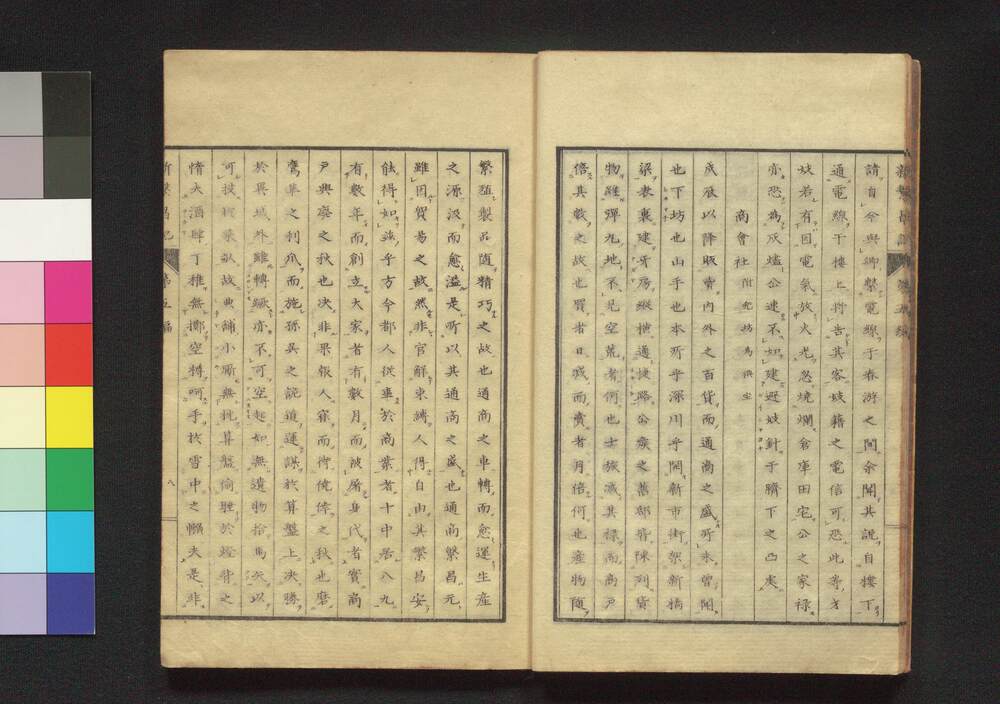 請自今與卿繫電線于春游之間余聞其說自樓下
通電線于樓上將告其客妓籍之電信可恐此等才
妓若有因電氣放火光忽燒爛倉庫田宅公之家祿
亦恐為灰燼公速不如建避妓針于臍下之凸夫
商會社
成辰以降販賣內外之百貨而通商之盛所未曾聞
也下坊也山手也本所乎深川乎開新市街架新橋
梁表裏建牙房縱橫通捷路公廨之舊邸皆陳列貨
物雖彈丸地不見空荒者何也士族減其祿而商戶
倍其數之故也買者日減而賣者月倍何也產物隨
繁殖製品隨精巧之故也通商之車轉而愈運生產
之源汲而愈溢是所以其通商之盛也通商繁昌元
雖因貿易之故然非官解束縛人得自由其繁昌安
能得如茲乎方今都人從事於商業者十中居八九
有數年而創立大家者有數月而破屠身代者實商
戶興廢之秋也決非果報人寐而待僥倖之秋也磨
鷹隼之利爪而施孫吳之詭道運謀於算盤上決勝
於異域外雖轉蹶亦不可空起如無遺物拾馬矢以
可投故典舖小廝無枕算盤偷睡於燈背之
惰夫酒肆丁稚無擲空樽呵手於雪中之懶夫是非
新繁昌記 第五編 八